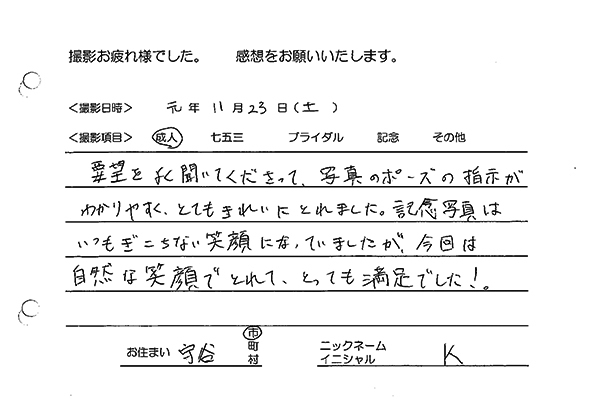 撮影お疲れ様でした。　感想をお願いいたします。
<撮影日時>　元年 11月23日(土)
<撮影項目>　成人　七五三　ブライダル　記念　その他
要望をよく聞いてくださって、写真のポーズの指示が
わかりやすく、とてもきれいにとれました。記念写真は
いつもぎこちない笑顔になっていましたが、今回は
自然な笑顔でとれて、とっても満足でした!。
お住まい　守谷　市町村　ニックネーム イニシャル　K